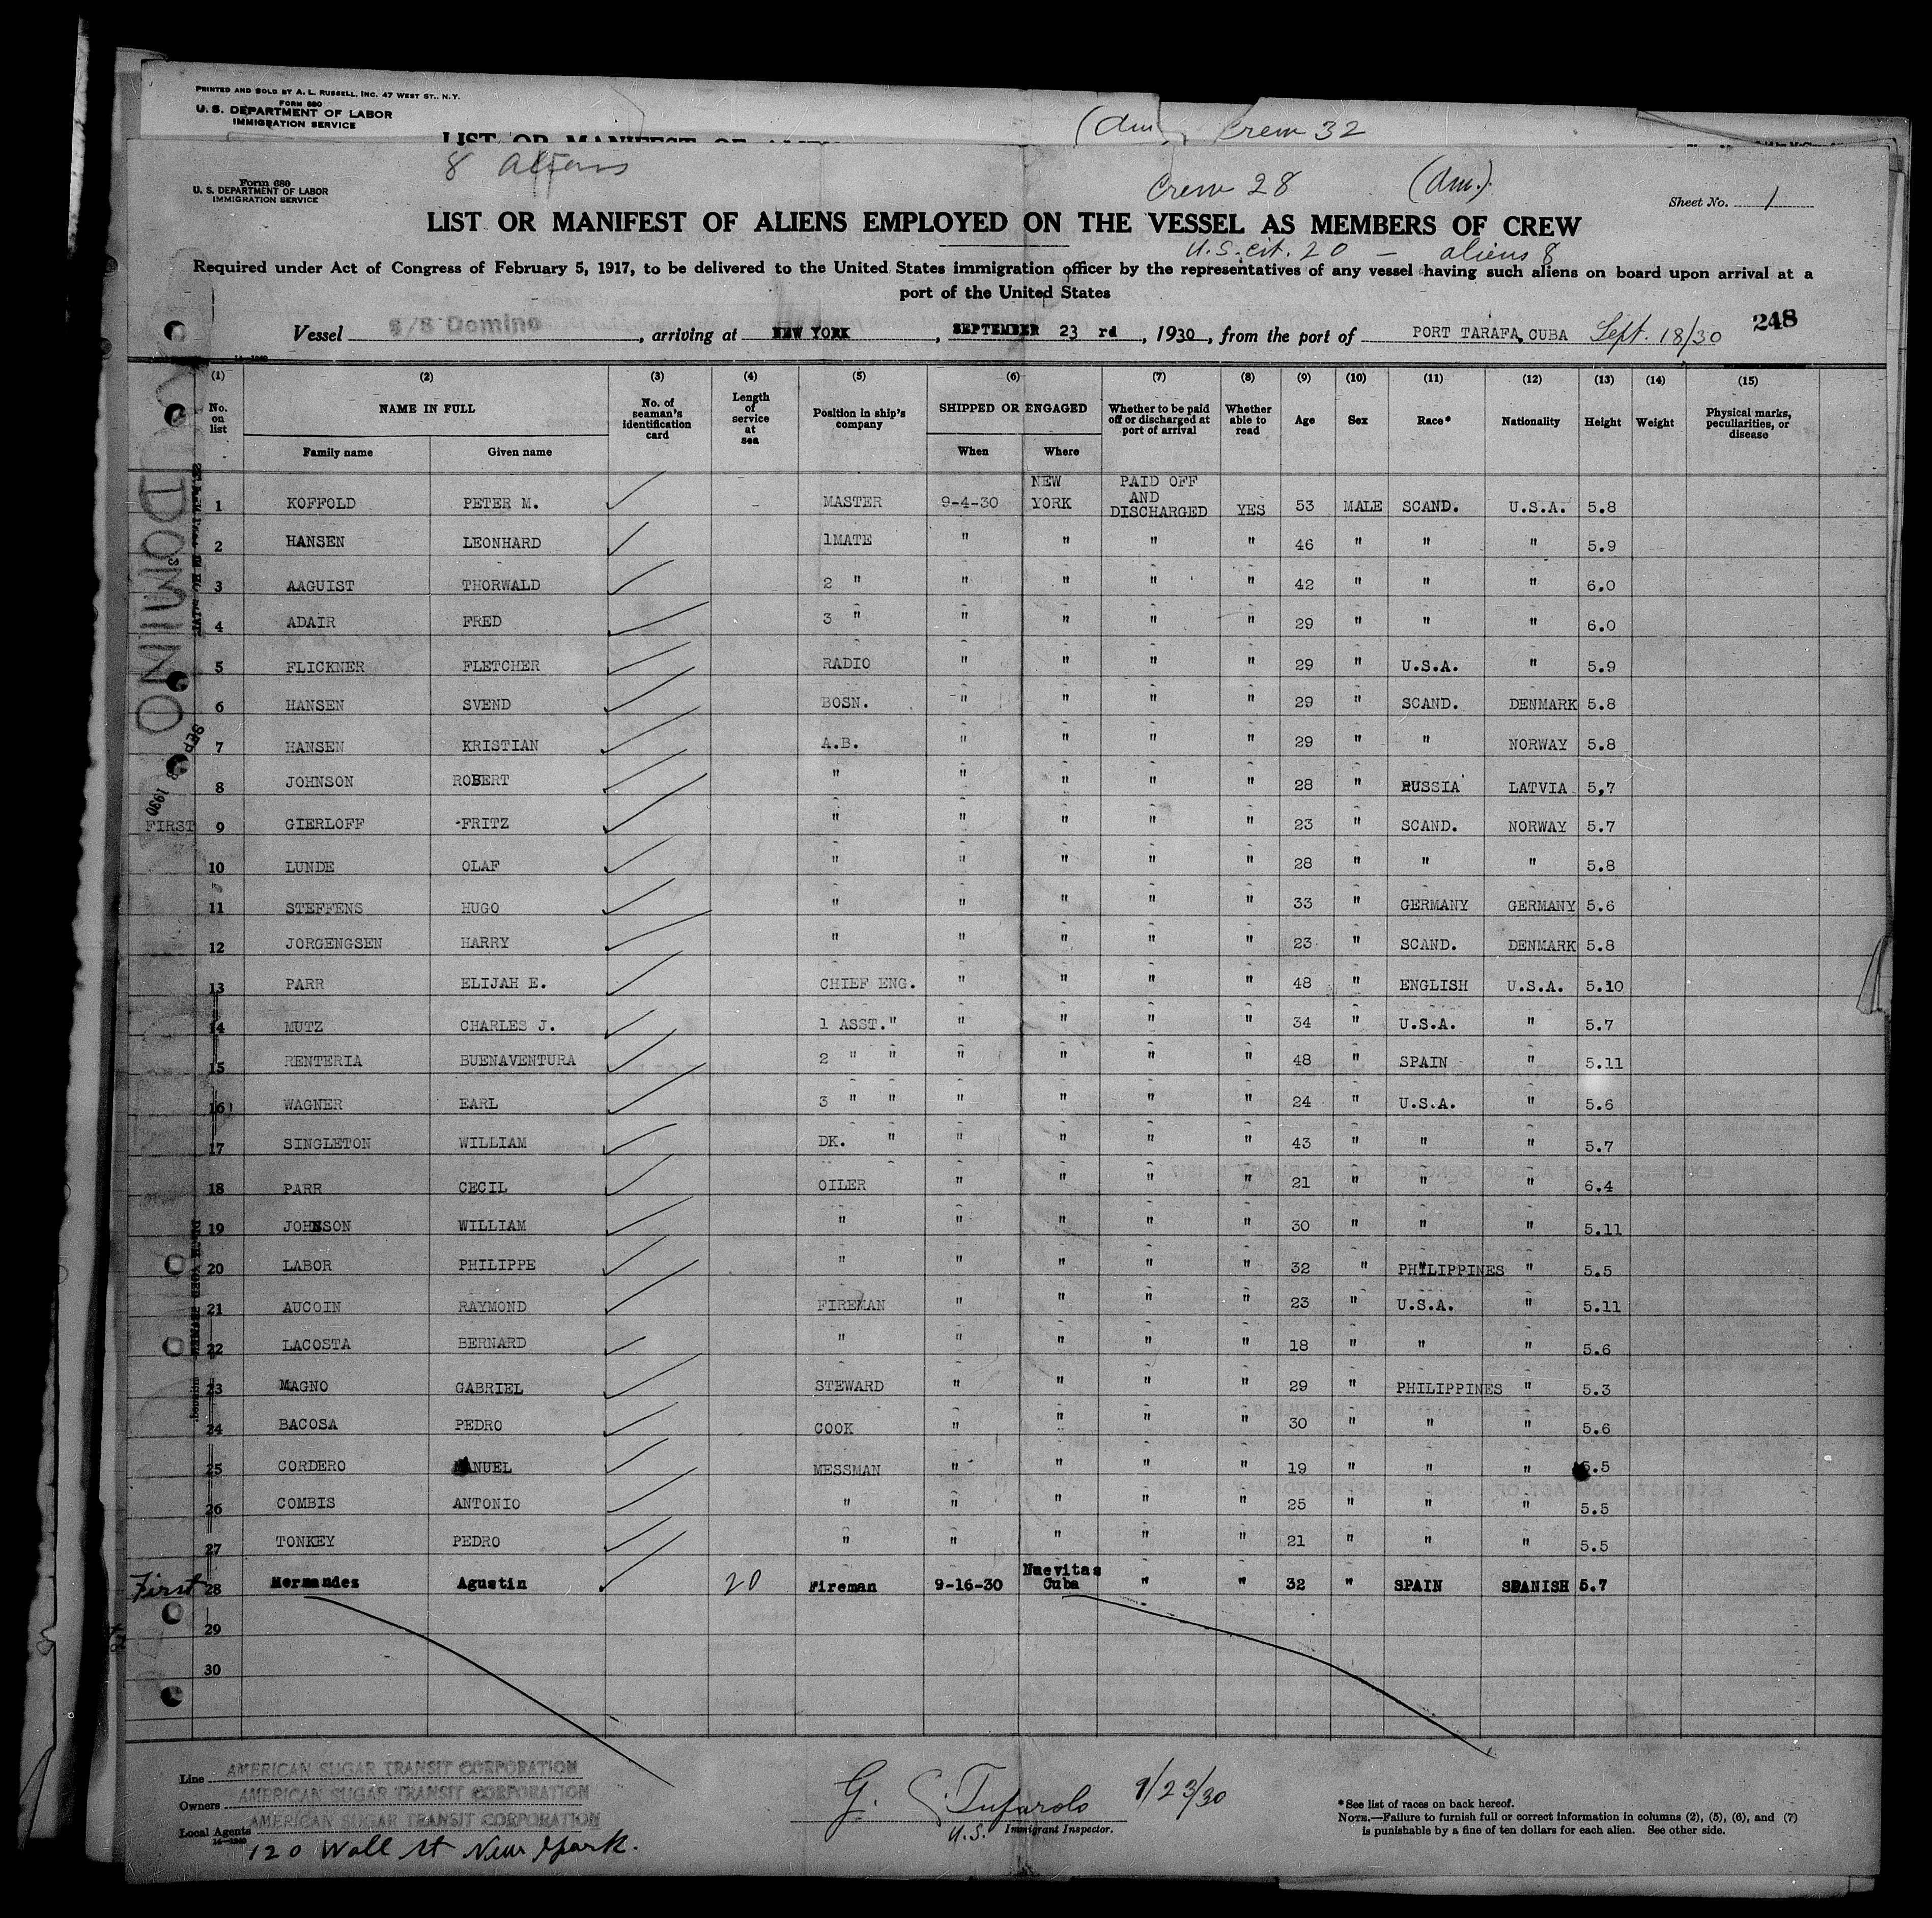 PRINTED AND SOLD BY A. L. RUSSELL, INC. 47 WEST ST., N.Y.
FORM 680
U. S. DEPARTMENT OF LABOR
IMMIGRATION SERVICE
(Am) Crew 32
LIST OR MANIFEST OF ALIEN
8 Aliens
Crew 28 (Am.)
Form 680
U. S. DEPARTMENT OF LABOR
IMMIGRATION SERVICE
Sheet No. 1
LIST OR MANIFEST OF ALIENS EMPLOYED ON THE VESSEL AS MEMBERS OF CREW
U.S. cit. 20 - aliens 8
Required under Act of Congress of February 5, 1917, to be delivered to the United States immigration officer by the representatives of any vessel having such aliens on board upon arrival at a
port of the United States
248
Vessel S/S Domino, arriving at NEW YORK, SEPTEMBER 23 rd, 1930, from the port of PORT TARAFA, CUBA Sept. 18/30
14-1240
(1) (2) (3) (4) (5) (6) (7) (8) (9) (10) (11) (12) (13) (14) (15)
No. on list NAME IN FULL No. of seaman's identification card Length of service at sea Position in ship's company SHIPPED OR ENGAGED Whether to be paid off or discharged at port of arrival Whether able to read Age Sex Race* Nationality Height Weight Physical marks, peculiarities, or disease
Family name Given name When Where
1 KOFFOLD PETER M. MASTER 9-4-30 NEW YORK PAID OFF AND DISCHARGED YES 53 MALE SCAND. U.S.A. 5.8
2 HANSEN LEONHARD 1MATE " " " " 46 " " " 5.9
3 AAGUIST THORWALD 2 " " " " " 42 " " " 6.0
4 ADAIR FRED 3 " " " " " 29 " " " 6.0
5 FLICKNER FLETCHER RADIO " " " " 29 " U.S.A. " 5.9
6 HANSEN SVEND BOSN. " " " " 29 " SCAND. DENMARK 5.8
7 HANSEN KRISTIAN A.B. " " " " 29 " " NORWAY 5.8
8 JOHNSON ROBERT " " " " " 28 " RUSSIA LATVIA 5,7
FIRST 9 GIERLOFF -FRITZ " " " " " 23 " SCAND. NORWAY 5.7
10 LUNDE OLAF " " " " " 28 " " " 5.8
11 STEFFENS HUGO " " " " " 33 " GERMANY GERMANY 5.6
12 JORGENGSEN HARRY " " " " " 23 " SCAND. DENMARK 5.8
13 PARR ELIJAH E. CHIEF ENG. " " " " 48 " ENGLISH U.S.A. 5.10
14 MUTZ CHARLES J. 1 ASST." " " " " 34 " U.S.A. " 5.7
15 RENTERIA BUENAVENTURA 2 " " " " " " 48 " SPAIN " 5.11
16 WAGNER EARL 3 " " " " " " 24 " U.S.A. " 5.6
17 SINGLETON WILLIAM DK. " " " " " 43 " " " 5.7
18 PARR CECIL OILER " " " " 21 " " " 6.4
19 JOHNSON WILLIAM " " " " " 30 " " " 5.11
20 LABOR PHILIPPE " " " " " 32 " PHILIPPINES " 5.5
21 AUCOIN RAYMOND FIREMAN " " " " 23 " U.S.A. " 5.11
22 LACOSTA BERNARD " " " " " 18 " " " 5.6
23 MAGNO GABRIEL STEWARD " " " " 29 " PHILIPPINES " 5.3
24 BACOSA PEDRO COOK " " " " 30 " " " 5.6
25 CORDERO MANUEL MESSMAN " " " " 19 " " " 5.5
26 COMBIS ANTONIO " " " " " 25 " " " 5.5
27 TONKEY PEDRO " " " " " 21 " " " 5.5
First 28 Hermandes Agustin 20 Fireman 9-16-30 Nuevitas Cuba " " 32 " SPAIN SPANISH 5.7
29
30
DOMINO
SEP
1930
Line AMERICAN SUGAR TRANSIT CORPORATION
Owners AMERICAN SUGAR TRANSIT CORPORATION
Local Agents AMERICAN SUGAR TRANSIT CORPORATION
14-1240
120 Wall St New York.
G. S. Tufarolo 9/23/30
U.S. Immigrant Inspector.
*See list of races on back hereof.
NOTE.—Failure to furnish full or correct information in columns (2), (5), (6), and (7)
is punishable by a fine of ten dollars for each alien. See other side.